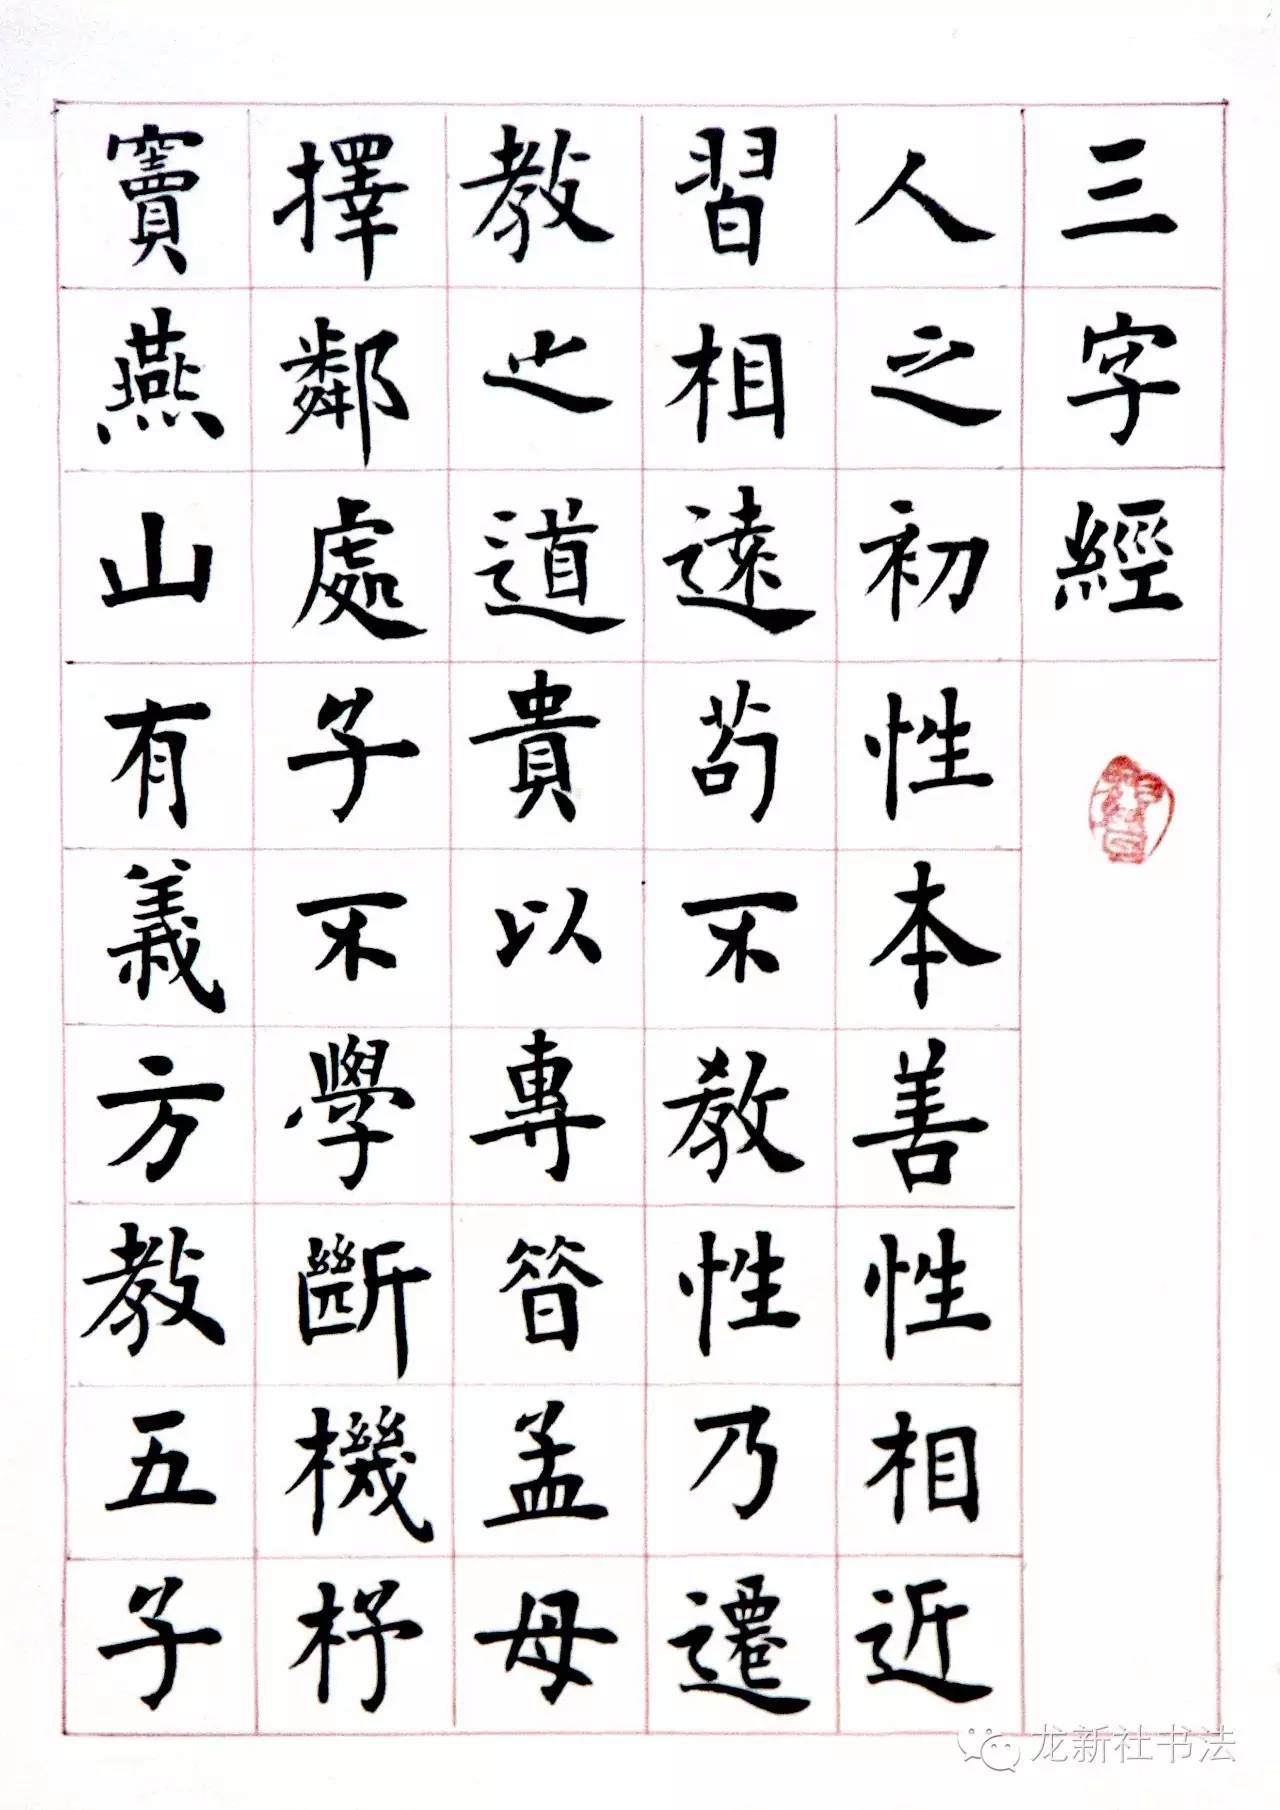 三字經
人之初性本善性相近
習相遠苟不教性乃遷
教之道貴以專昔孟母
擇鄰處子不學斷機杼
竇燕山有義方教五子
龙新社书法